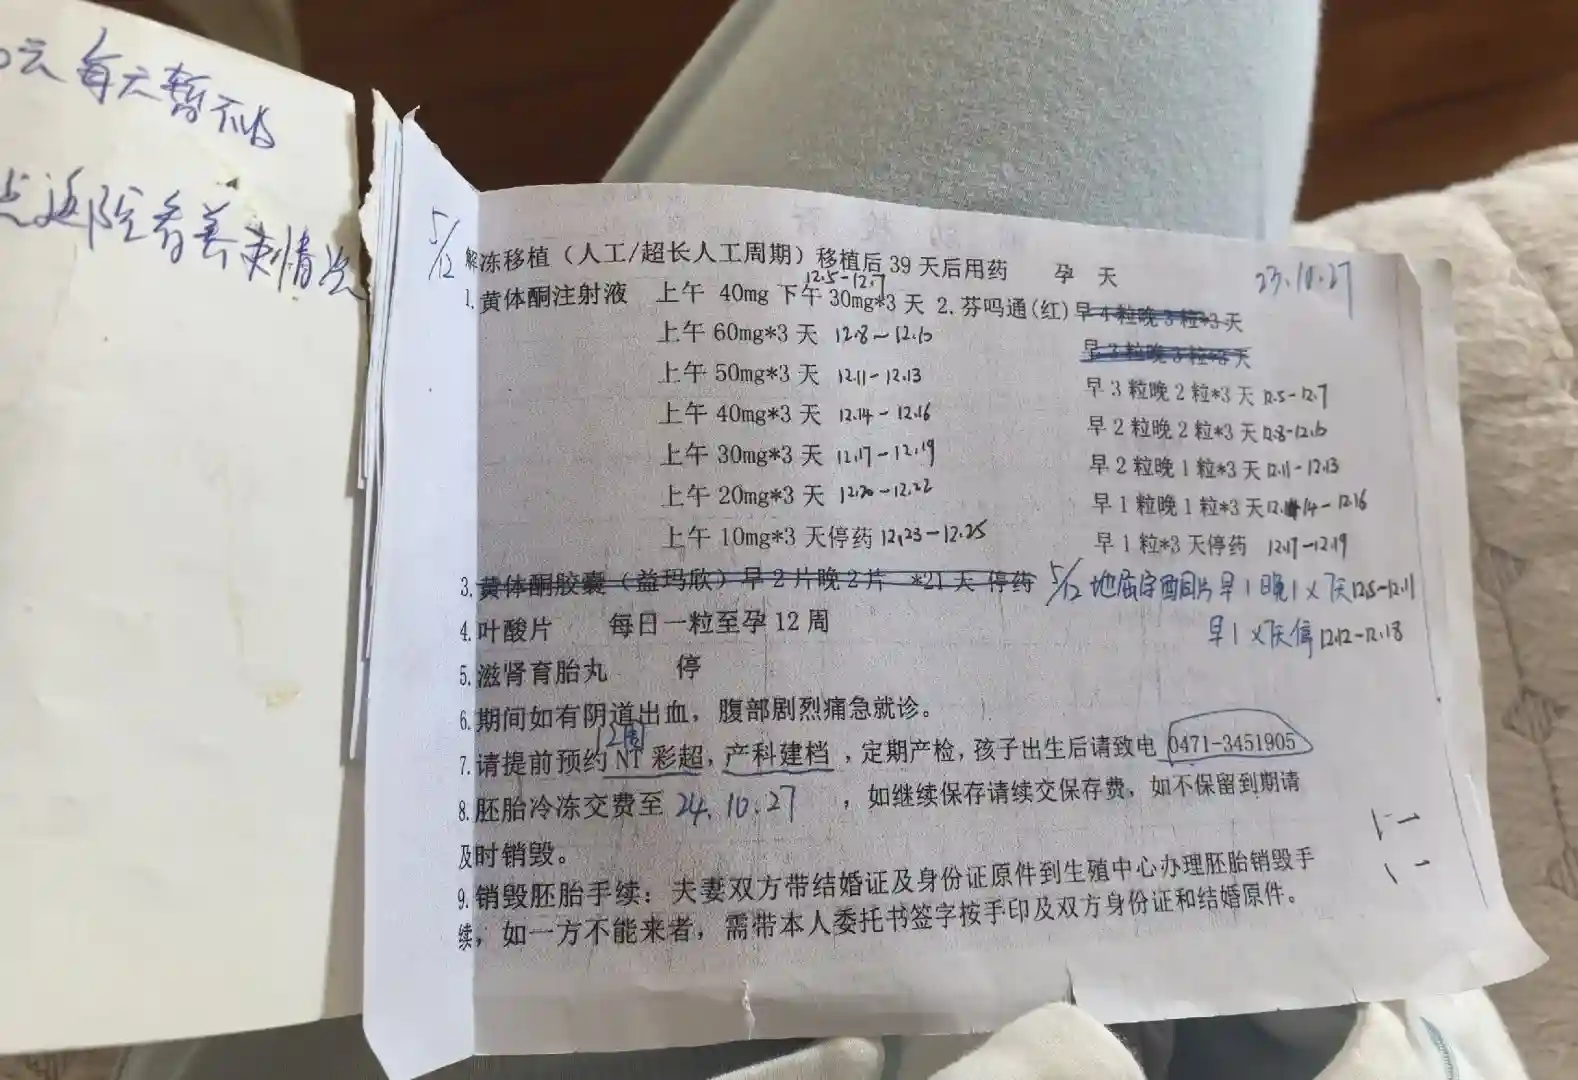 云每天暂不
返院看姜
5/12
解冻移植（人工/超长人工周期）移植后39天后用药 孕 天
23.10.27
12.5-12.7
1.黄体酮注射液 上午 40mg 下午 30mg*3 天 2.芬吗通(红)早4粒晚3粒*3天
上午 60mg*3 天 12.8-12.10
早3粒晚3粒*3天
上午 50mg*3 天 12.11-12.13
早3粒晚2粒*3天 12.5-12.7
上午 40mg*3 天 12.14-12.16
早2粒晚2粒*3天 12.8-12.10
上午 30mg*3 天 12.17-12.19
早2粒晚1粒*3天 12.11-12.13
上午 20mg*3 天 12.20-12.22
早1粒晚1粒*3天 12.14-12.16
上午 10mg*3 天停药 12.23-12.25
早1粒*3天停药 12.17-12.19
3.黄体酮胶囊（益玛欣）早2片晚2片 *21天 停药
5/12 地屈孕酮片早1晚1×7天12.5-12.11
早1×7天停12.12-12.18
4.叶酸片 每日一粒至孕12周
5.滋肾育胎丸 停
6.期间如有阴道出血，腹部剧烈痛急就诊。
12周
7.请提前预约NT彩超，产科建档，定期产检，孩子出生后请致电0471-3451905
8.胚胎冷冻交费至 24.10.27 ，如继续保存请续交保存费，如不保留到期请
及时销毁。
9.销毁胚胎手续：夫妻双方带结婚证及身份证原件到生殖中心办理胚胎销毁手
续，如一方不能来者，需带本人委托书签字按手印及双方身份证和结婚原件。